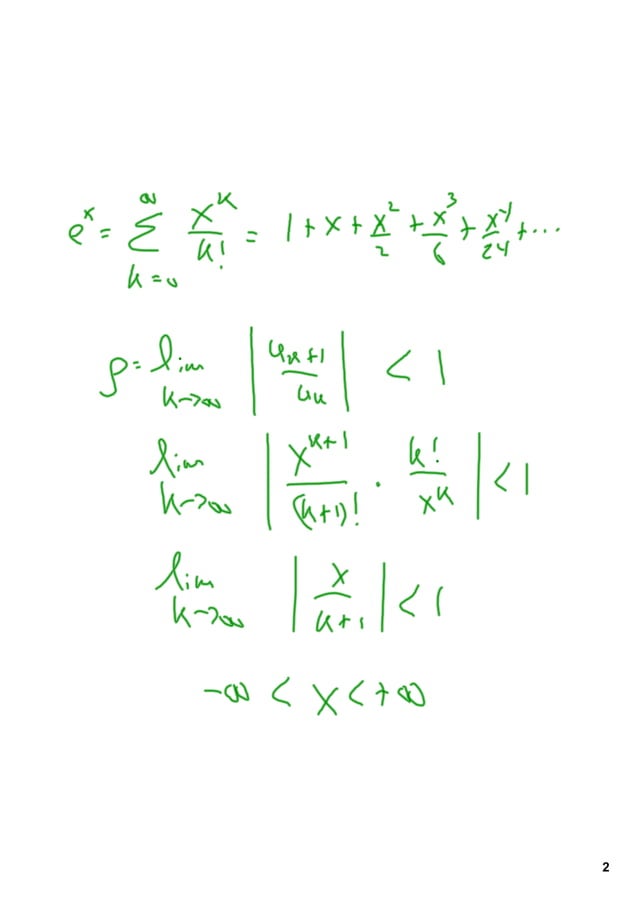 e^x = ∑_{k=0}^{∞} x^k/k! = 1 + x + x^2/2 + x^3/6 + x^4/24 + ...
ρ = lim_{k→∞} |u_{k+1}/u_k| < 1
lim_{k→∞} |x^{k+1}/(k+1)! · k!/x^k| < 1
lim_{k→∞} |x/(k+1)| < 1
-∞ < x < +∞
2